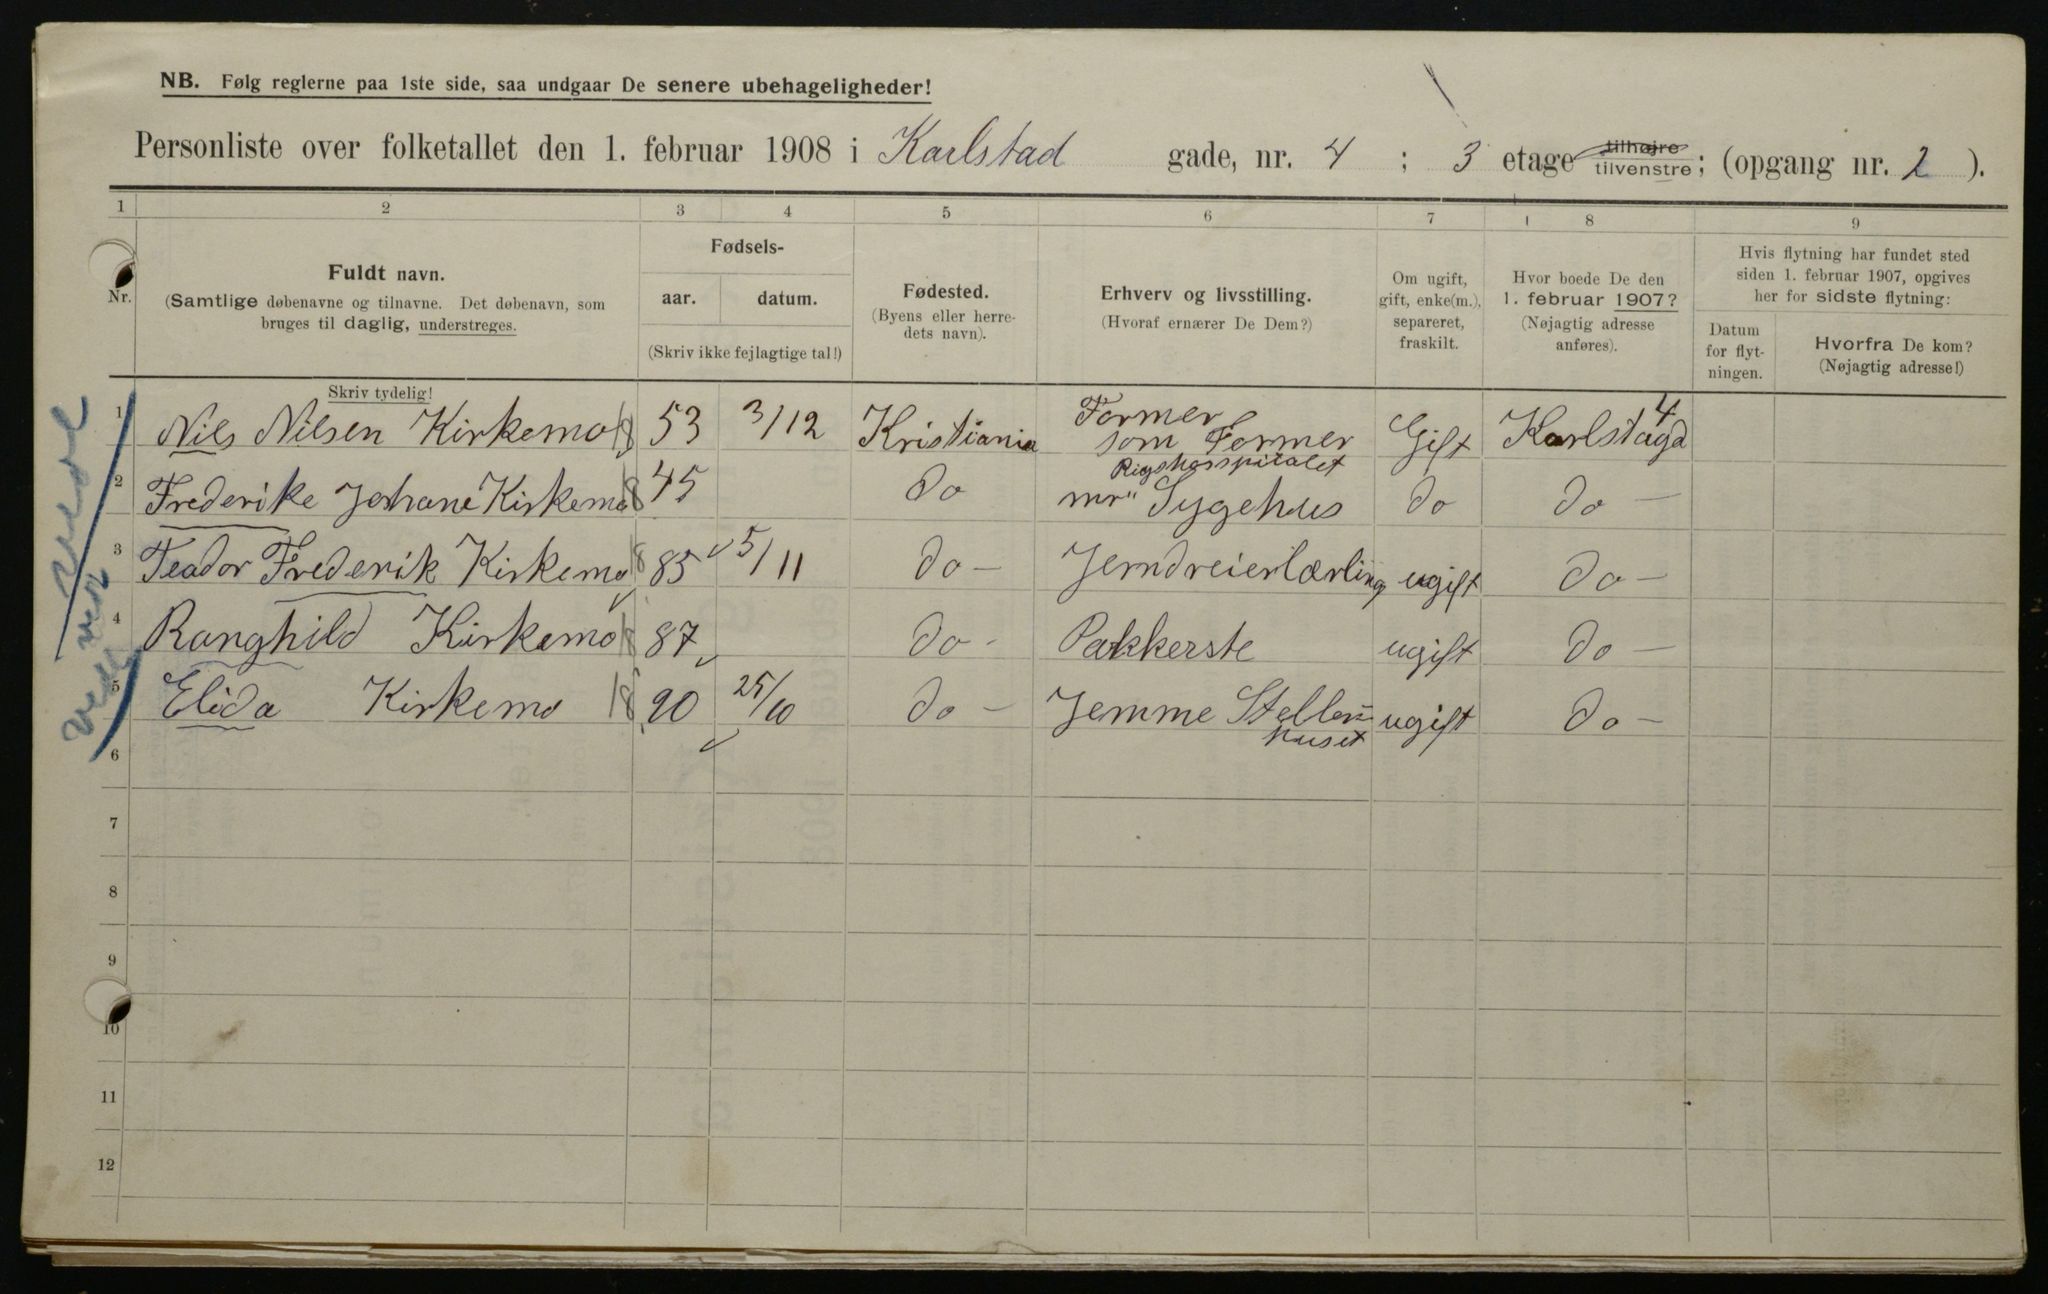 NB. Følg reglerne paa 1ste side, saa undgaar De senere ubehageligheder!
Personliste over folketallet den 1. februar 1908 i Karlstad gade, nr. 4 ; 3 etage tilhøjre tilvenstre; (opgang nr. 2 ).
1 2 3 4 5 6 7 8 9
Nr.
Fuldt navn.
(Samtlige døbenavne og tilnavne. Det døbenavn, som
bruges til daglig, understreges.
Skriv tydelig!
Fødsels-
aar. datum.
(Skriv ikke fejlagtige tal!)
Fødested.
(Byens eller herre-
dets navn).
Erhverv og livsstilling.
(Hvoraf ernærer De Dem?)
Om ugift,
gift, enke(m.),
separeret,
fraskilt.
Hvor boede De den
1. februar 1907?
(Nøjagtig adresse
anføres).
Hvis flytning har fundet sted
siden 1. februar 1907, opgives
her for sidste flytning:
Datum
for flyt-
ningen.
Hvorfra De kom?
(Nøjagtig adresse!)
1 Nils Nilsen Kirkemo 18 53 3/12 Kristiania Former som Former Gift Karlstagd 4
2 Frederike Johane Kirkemo 18 45 do Rigshosspitalet Sygehus do do —
3 Teador Frederik Kirkemo 18 85 5/11 do — Jerndreierlærling ugift do —
4 Ranghild Kirkemo 18 87 do - Pakkerste ugift do —
5 Elida Kirkemo 18 90 25/10 do — Jemme Stellerhuset ugift do —
6
7
8
9
10
11
12